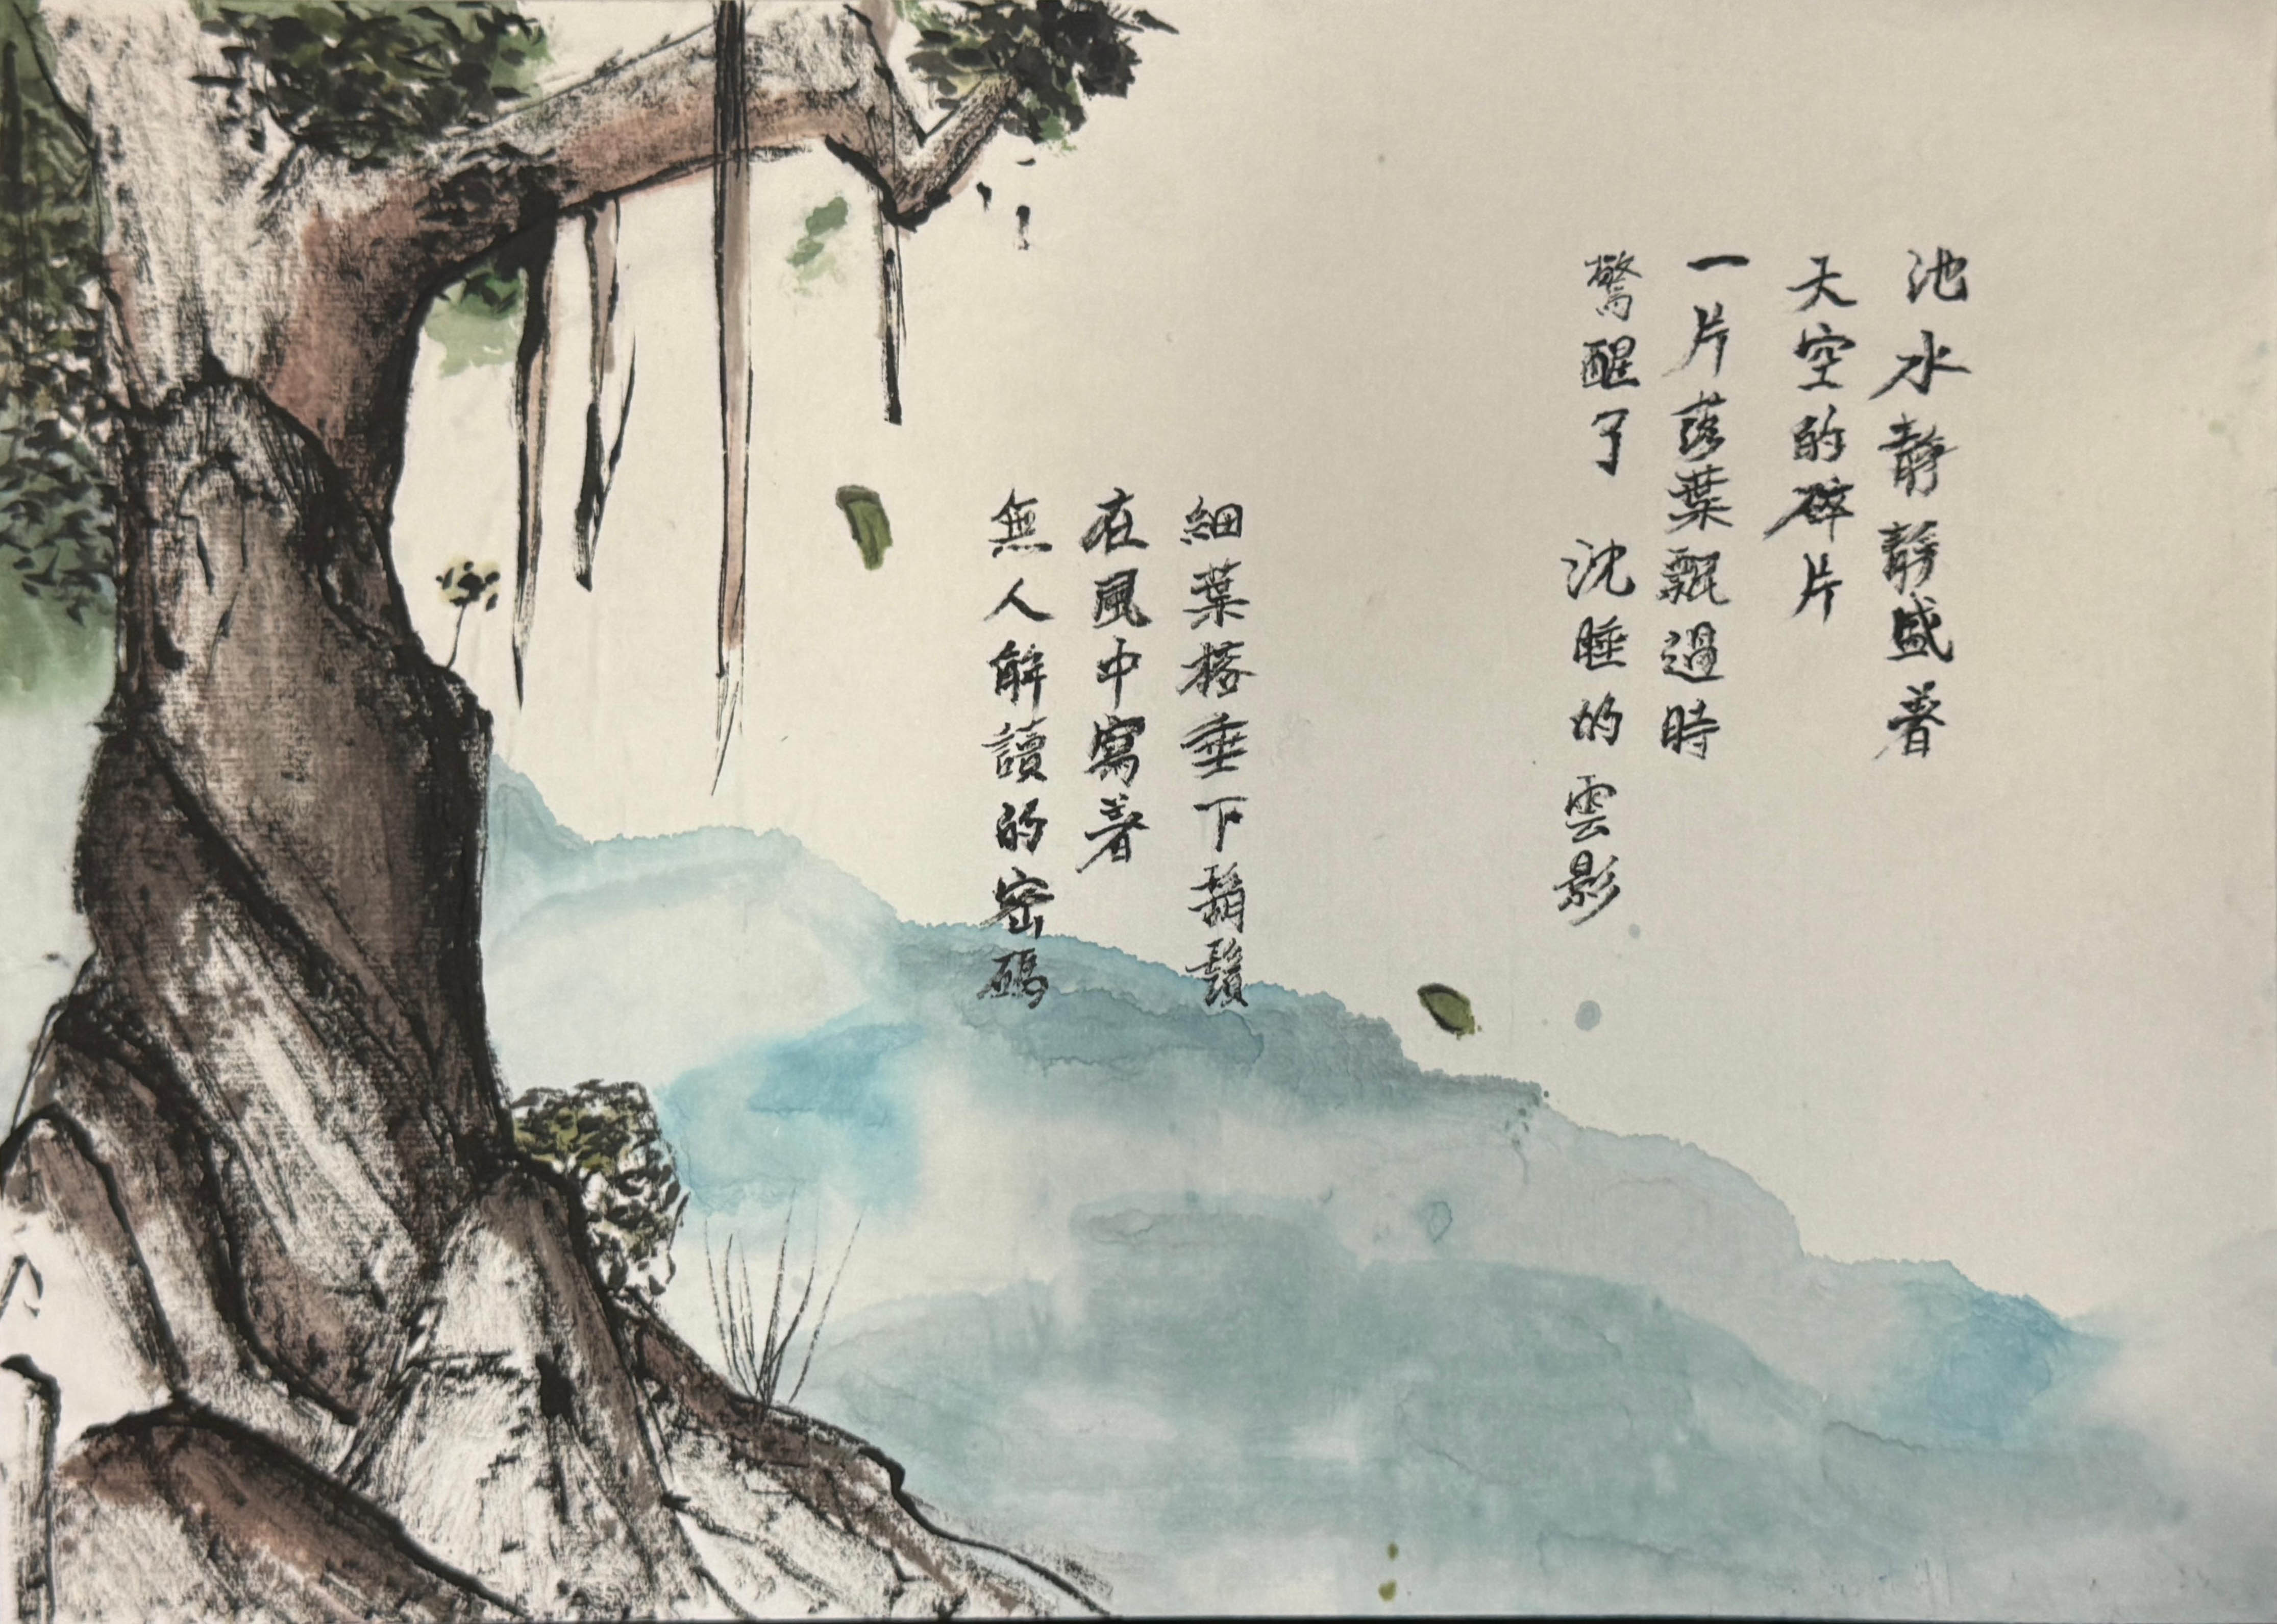 池水靜靜盛着
天空的碎片
一片落葉飄過時
驚醒了 沈睡的雲影
細葉榕垂下鬍鬚
在風中寫着
無人解讀的密碼